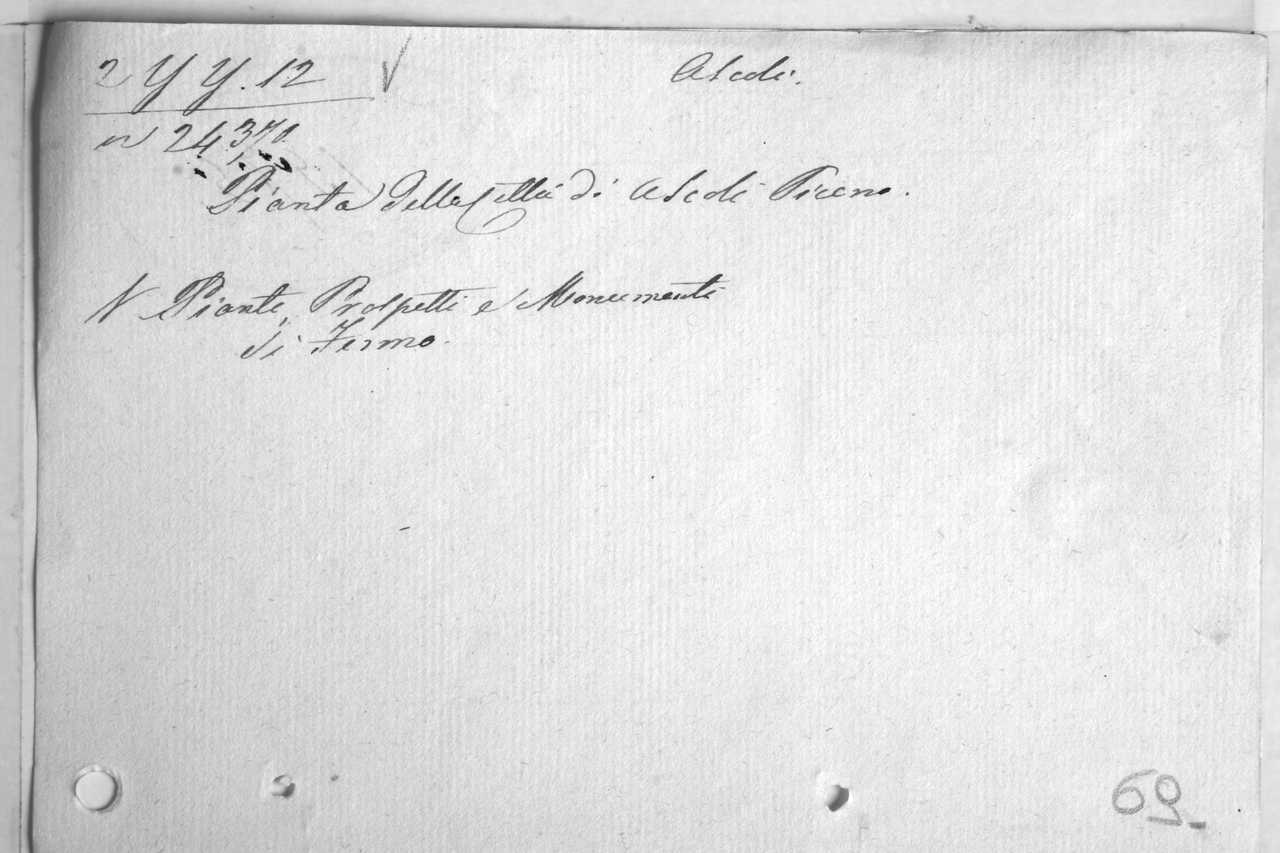 2 Y Y. 12
Ascoli.
n 24,370.
Pianta della Città di Ascoli Piceno.
V Piante, Prospetti e Monumenti
di Fermo.
69_